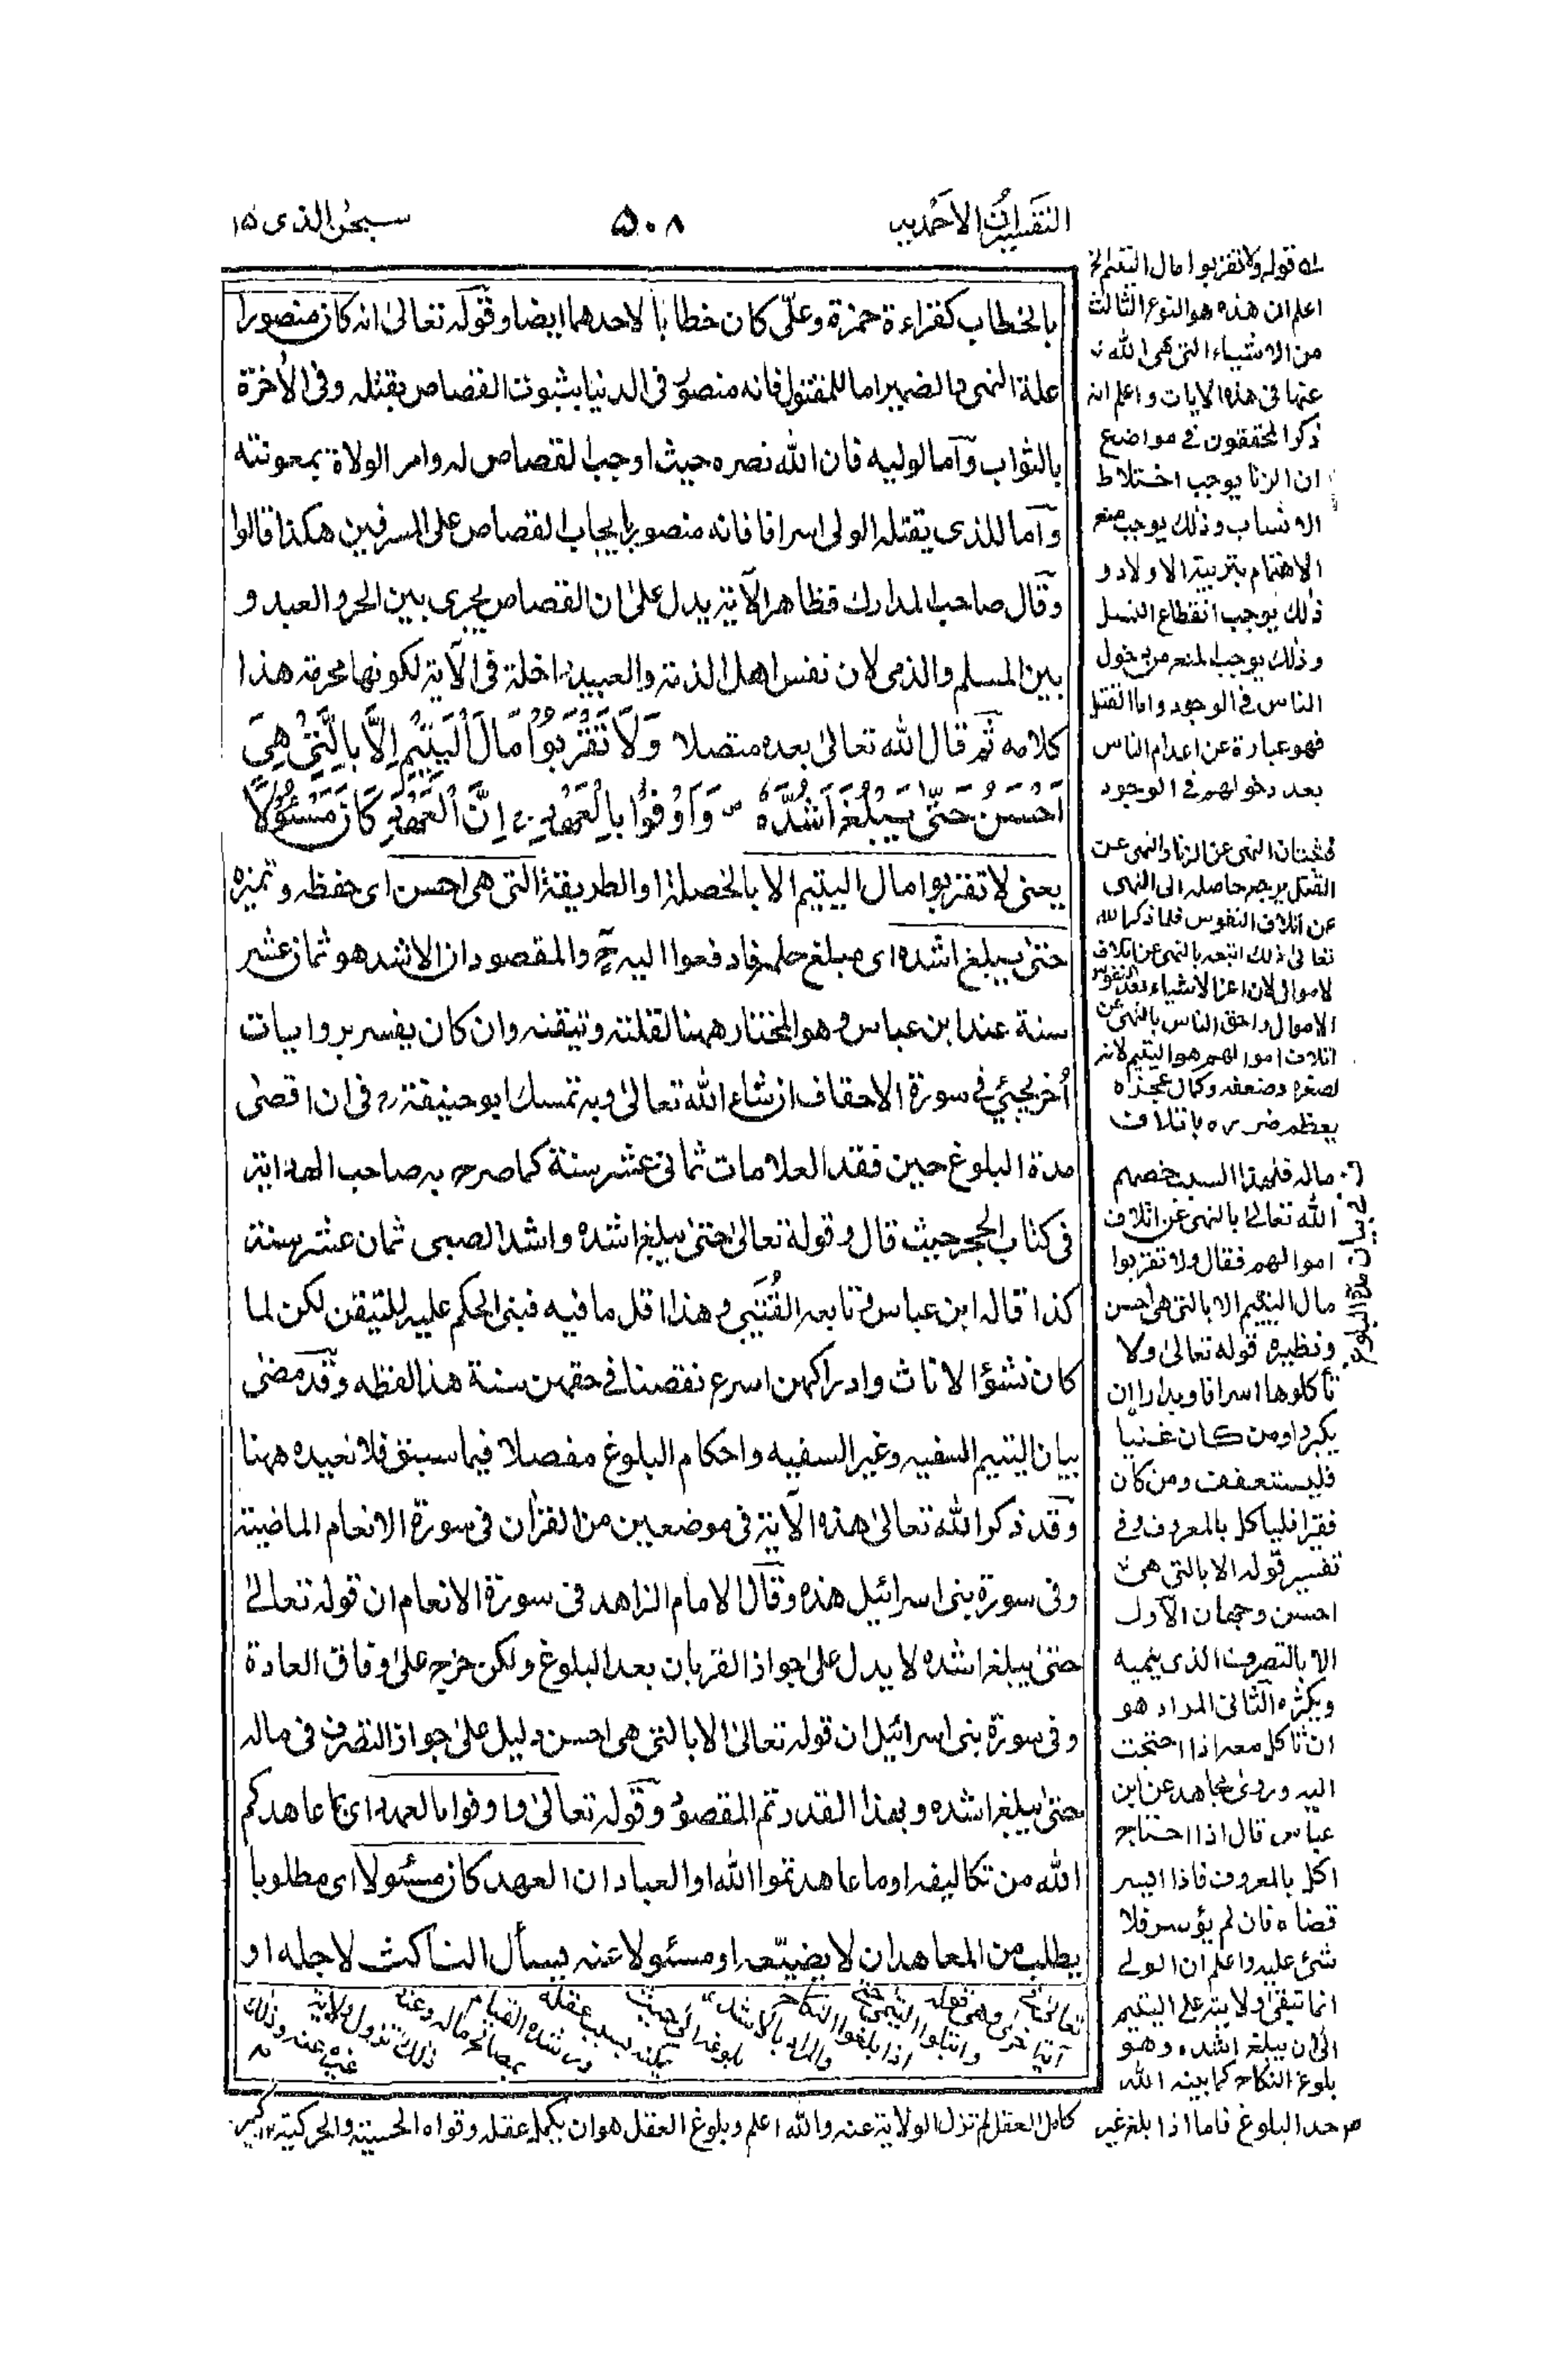 التفسيرات الاحمدية
۵۰۸
سبحن الذى ۱۵
بالخطاب كقراءة حمزة وعلى كان خطابا لاحدهما ايضا وقوله تعالى انه كان منصورا
علة النهى والضمير اما للمقتول فانه منصور فى الدنيا بثبوت القصاص بقتله وفى الأخرة
بالثواب وآما لوليه فان الله نصره حيث اوجب القصاص له وامر الولاة بمعونته
وآما للذى يقتله الولى اسرافا فانه منصور بايجاب القصاص على المسرفين هكذا قالوا
وقال صاحب المدارك فظاهر الآية يدل على ان القصاص يجرى بين الحر والعبد و
بين المسلم والذمى لان نفس اهل الذمة والعبيد داخلة فى الآية لكونها محرمة هذا
كلامه ثم قال الله تعالى بعده متصلا وَلَا تَقْرَبُوْا مَالَ الْيَتِيْمِ اِلَّا بِالَّتِيْ هِيَ
اَحْسَنُ حَتّٰى يَبْلُغَ اَشُدَّهٗ ص وَاَوْفُوْا بِالْعَهْدِ ج اِنَّ الْعَهْدَ كَانَ مَسْئُوْلًا
يعنى لا تقربوا مال اليتيم الا بالخصلة او الطريقة التى هى احسن اى حفظه وتميزه
حتى يبلغ اشده اى مبلغ حلمه فادفعوا اليه ح والمقصود ان الاشد هو ثمان عشر
سنة عند ابن عباس رض وهو المختار ههنا لقلته وتيقنه وان كان يفسر بروايات
أخر يجئ فى سورة الاحقاف ان شاء الله تعالى وبه تمسك ابو حنيفة رح فى ان اقصى
مدة البلوغ حين فقد العلامات ثمانى عشر سنة كما صرح به صاحب الهداية
فى كتاب الحجر حيث قال وقوله تعالى حتى يبلغ اشده واشد الصبى ثمان عشر سنة
كذا قاله ابن عباس رض وتابعه القُتَبِي وهذا اقل ما فيه فبنى الحكم عليه للتيقن لكن لما
كان نشؤ الاناث وادراكهن اسرع نقصنا فى حقهن سنة هذا لفظه وقد مضى
بيان اليتيم السفيه وغير السفيه واحكام البلوغ مفصلا فيما سبق فلا نعيده ههنا
وقد ذكر الله تعالى هذه الآية فى موضعين من القرأن فى سورة الانعام الماضية
وفى سورة بنى اسرائيل هذه وقال الامام الزاهد فى سورة الانعام ان قوله تعالى
حتى يبلغ اشده لا يدل على جواز القربان بعد البلوغ ولكن خرج على وفاق العادة
وفى سورة بنى اسرائيل ان قوله تعالى الا بالتى هى احسن دليل على جواز التصرف فى ماله
حتى يبلغ اشده وبهذا القدر تم المقصود وقوله تعالى واوفوا بالعهد اى بما عاهدكم
الله من تكاليفه او ما عاهدتموا الله او العباد ان العهد كان مسئولا اى مطلوبا
يطلب من المعاهد ان لا يضيّعه او مسئولا عنه يسأل الناكث لاجله او
له قوله ولا تقربوا مال اليتيم الخ
اعلم ان هذه هو النوع الثالث
من الاشياء التى نهى الله
عنها فى هذه الايات واعلم انه
ذكر المحققون فى مواضع
ان الزنا يوجب اختلاط
الانساب وذلك يوجب منع
الاهتمام بتربية الاولاد و
ذلك يوجب انقطاع النسل
وذلك يوجب المنع من دخول
الناس فى الوجود واما القتل
فهو عبارة عن اعدام الناس
بعد دخولهم فى الوجود
فثبت ان النهى عن الزنا والنهى عن
القتل يرجع حاصله الى النهى
عن اتلاف النفوس فلما ذكر الله
تعالى ذلك اتبعه بالنهى عن اتلاف
الاموال لان اعز الاشياء بعد النفوس
الاموال واحق الناس بالنهى عن
اتلاف اموالهم هو اليتيم لانه
لصغره وضعفه وكمال عجزه
يعظم ضرره باتلاف
ماله فلهذا السبب خصهم
الله تعالى بالنهى عن اتلاف
اموالهم فقال ولا تقربوا
مال اليتيم الا بالتى هى احسن
ونظيره قوله تعالى ولا
تأكلوها اسرافا وبدارا ان
يكبروا ومن كان غنيا
فليستعفف ومن كان
فقيرا فليأكل بالمعروف وفى
تفسير قوله الا بالتى هى
احسن وجهان الاول
الا بالتصرف الذى ينميه
ويكثره الثانى المراد هو
ان تأكل معه اذا احتجت
اليه وروى مجاهد عن ابن
عباس قال اذا احتاج
اكل بالمعروف فاذا ايسر
قضاه فان لم يؤسر فلا
شئ عليه واعلم ان الولى
انما تبقى ولايته على اليتيم
الى ان يبلغ اشده وهو
بلوغ النكاح كما بينه الله
فى بيان مدة البلوغ
تعالى فى
آية اخرى وهى قوله
وابتلوا اليتمى حتى
اذا بلغوا النكاح
والمراد بالاشد
بلوغه الى حيث
يمكنه بسبب عقله
ورشده القيام
بمصالح ماله وعند
ذلك تزول ولاية
غيره عنه وذلك
حد البلوغ فاما اذا بلغ غير
كامل العقل لم تزل الولاية عنه والله اعلم وبلوغ العقل هو ان يكمل عقله وقواه الحسية والحركية ۱۲ كبير